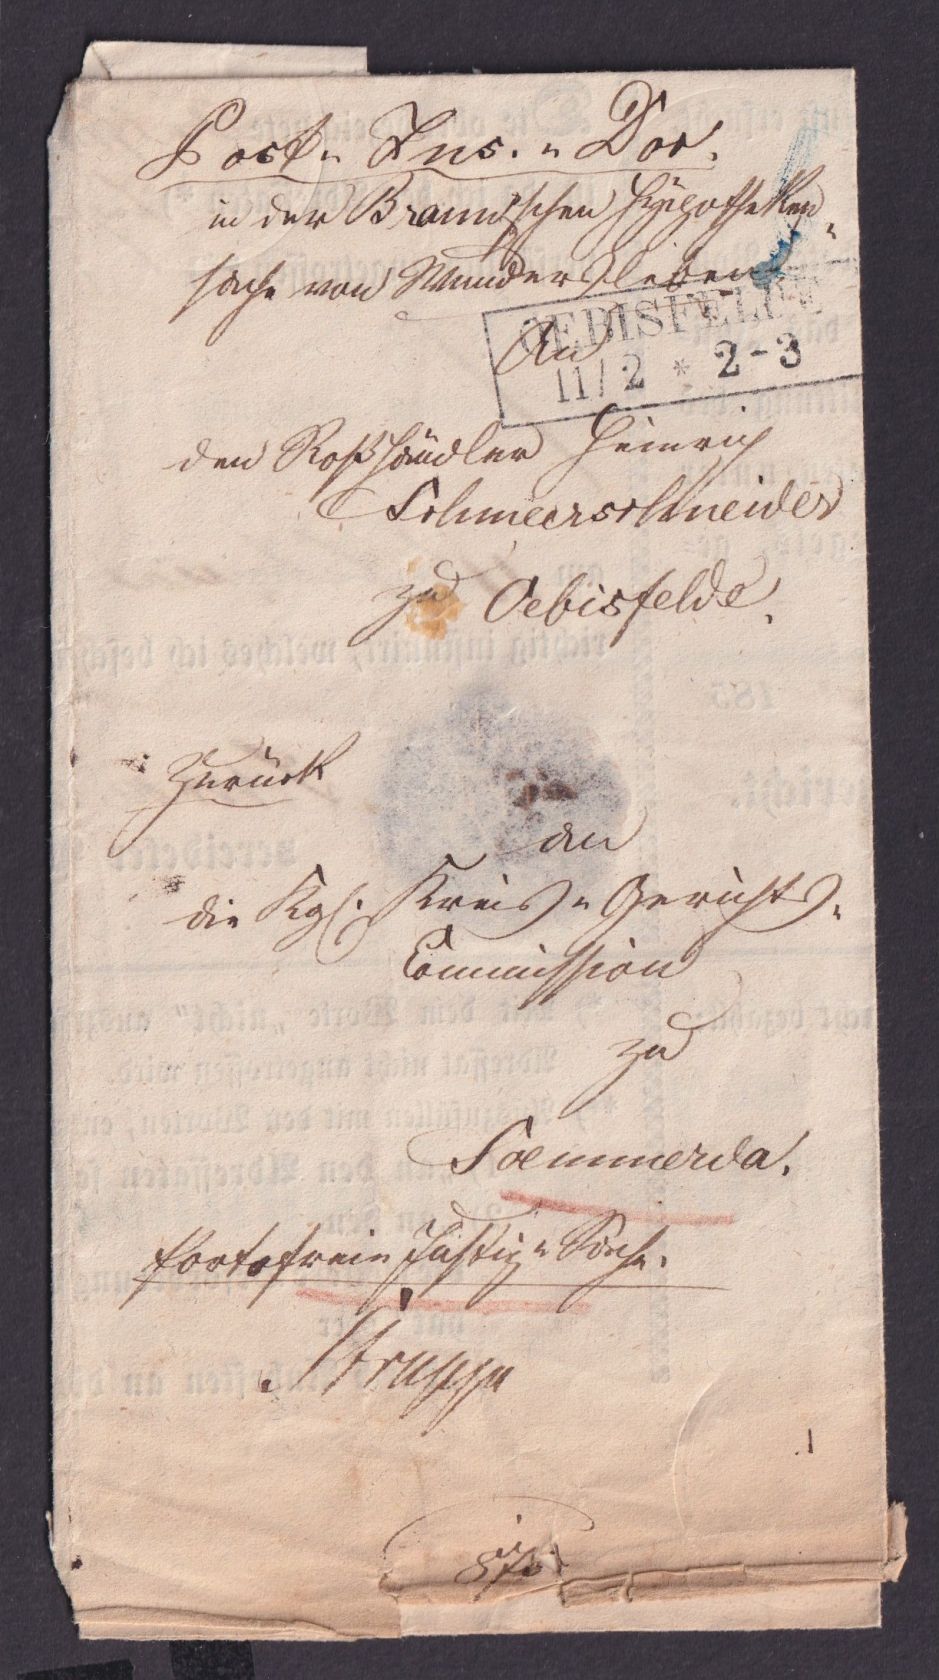 Post- Ins.- Dor.
in der Brandtschen Hypotheken-
sache von Wundersleben
OEBISFELDE
An
11/2 * 2-3
den Roßhändler Heinrich
Schmeerschneider
zu Oebisfelde.
Zurück
an
die Kgl. Kreis- Gerichts-
Commission
zu
Soemmerda.
Portofreie Justiz- Sache.